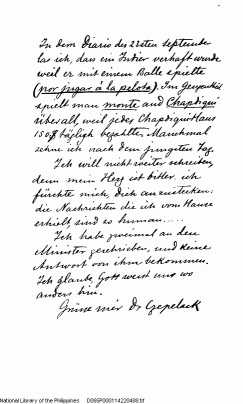 In dem Diario des 22sten September
las ich, dass ein Indier verhaft wurde
weil er mit einem Balle spielte
(por jugar á la pelota). Im Gegentheil
spielt man monte und Chapdiqui
überall, weil jedes Chapdiqui Haus
150 $ täglich bezahlt. Manchmal
sehne ich nach dem jüngsten Tag.
Ich will nicht weiter schreiben,
denn mein Herz ist bitter, ich
fürchte mich, dich anzustecken;
die Nachrichten die ich von Hause
erhielt, sind so human.....
Ich habe zweimal an den
Minister geschrieben, und keine
Antwort von ihm bekommen.
Ich glaube, Gott weist uns wo
anders hin.
Grüsse mir Dr Czepelack
National Library of the Philippines D065P000114220488.tif